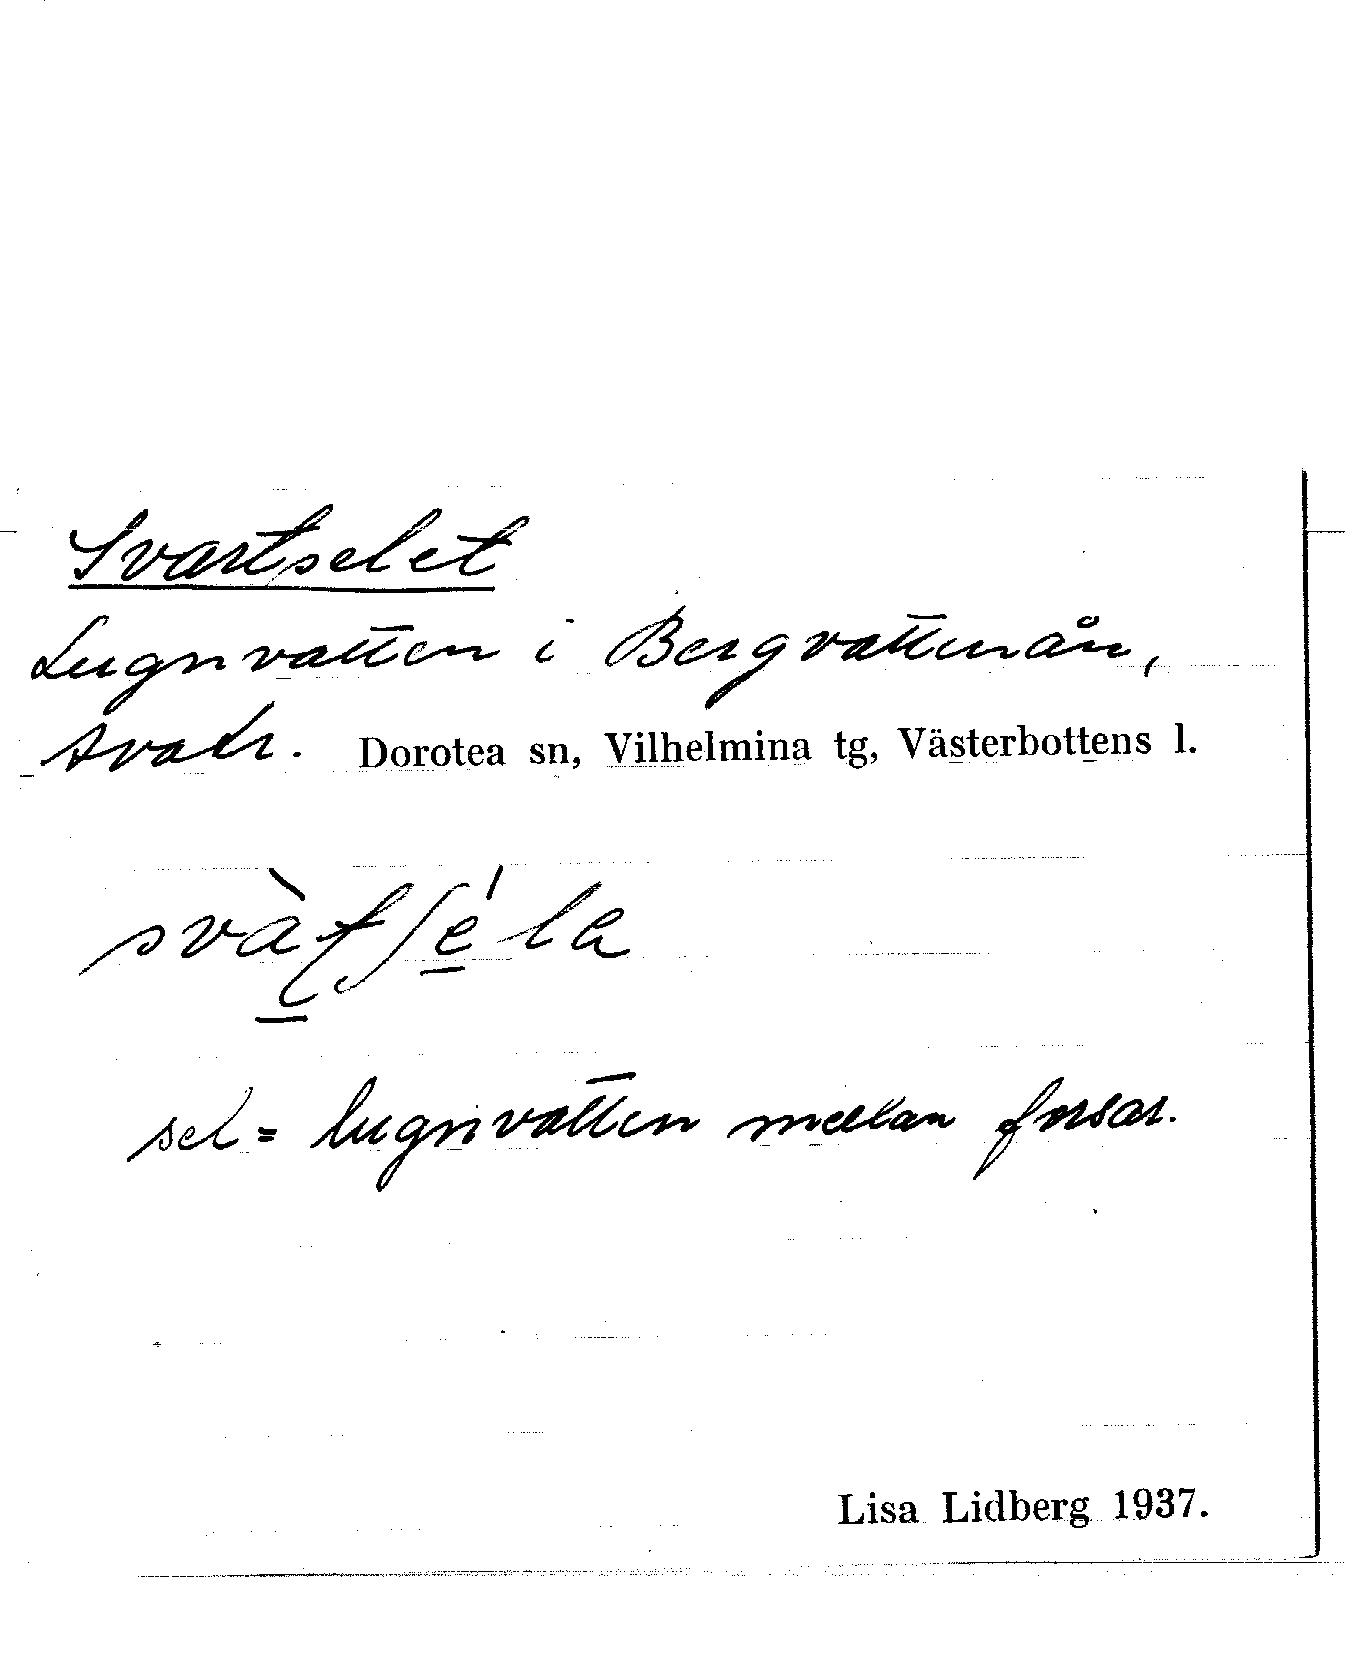 Svartselet
Lugnvatten i Bergvattenån,
Dorotea sn, Vilhelmina tg, Västerbottens l.
sel = lugnvatten mellan forsar.
Lisa Lidberg 1937.